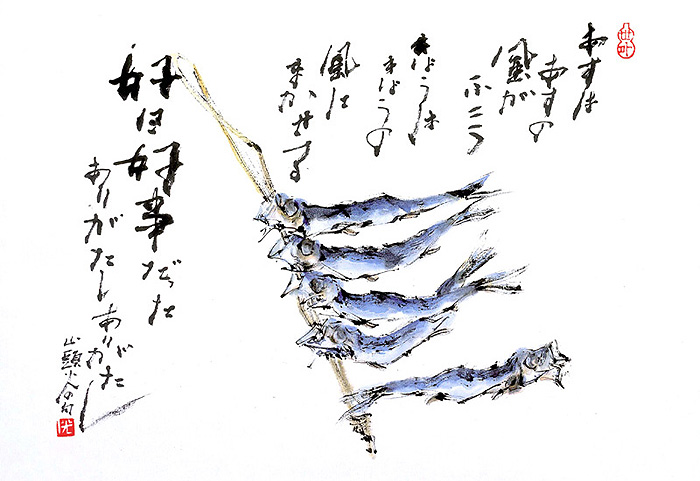 あすは
あすの
風が
ふこう
きょうは
きょうの
風に
まかせる
好日好事だった
ありがたしありがたし
山頭火の句